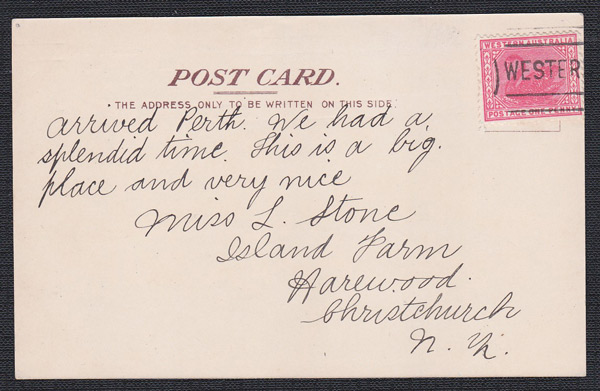 WESTERN AUSTRALIA
WESTER
POSTAGE ONE PENNY
POST CARD.
THE ADDRESS ONLY TO BE WRITTEN ON THIS SIDE.
arrived Perth. We had a
splendid time. This is a big.
place and very nice
Miss L. Stone
Island Farm
Harewood.
Christchurch
N. Z.